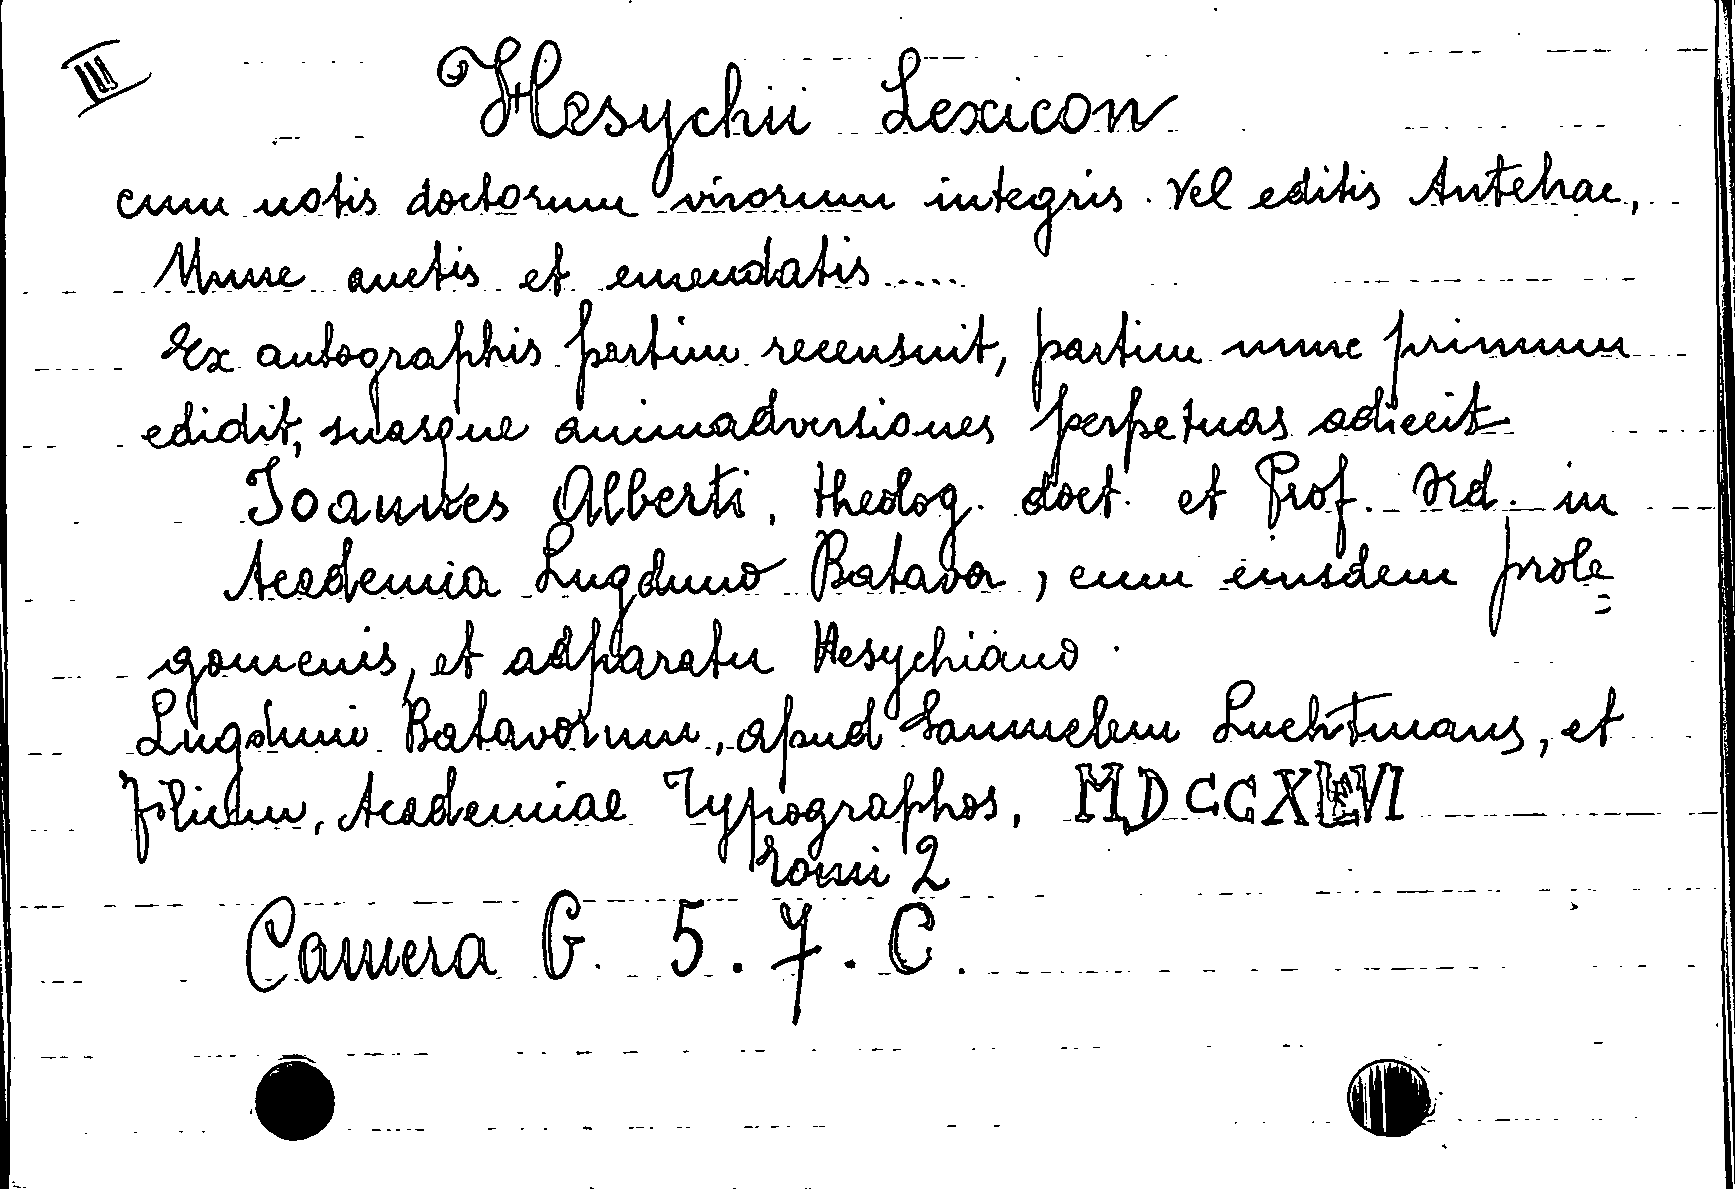 III
Hesychii Lexicon
cum notis doctorum virorum integris. Vel editis Antehac,
Nunc auctis et emendatis.....
Ex autographis partim recensuit, partim nunc primum
edidit, suasque animadversiones perpetuas adiecit
Joannes Alberti, theolog. doct. et Prof. Ord. in
Academia Lugduno Batava, cum eiusdem prole=
gomenis, et adparatu Hesychiano.
Lugduni Batavorum, apud Samuelem Luchtmans, et
filium, Academiae Typographos, MDCCXLVI
Tomi 2
Camera G. 5. 7. C.